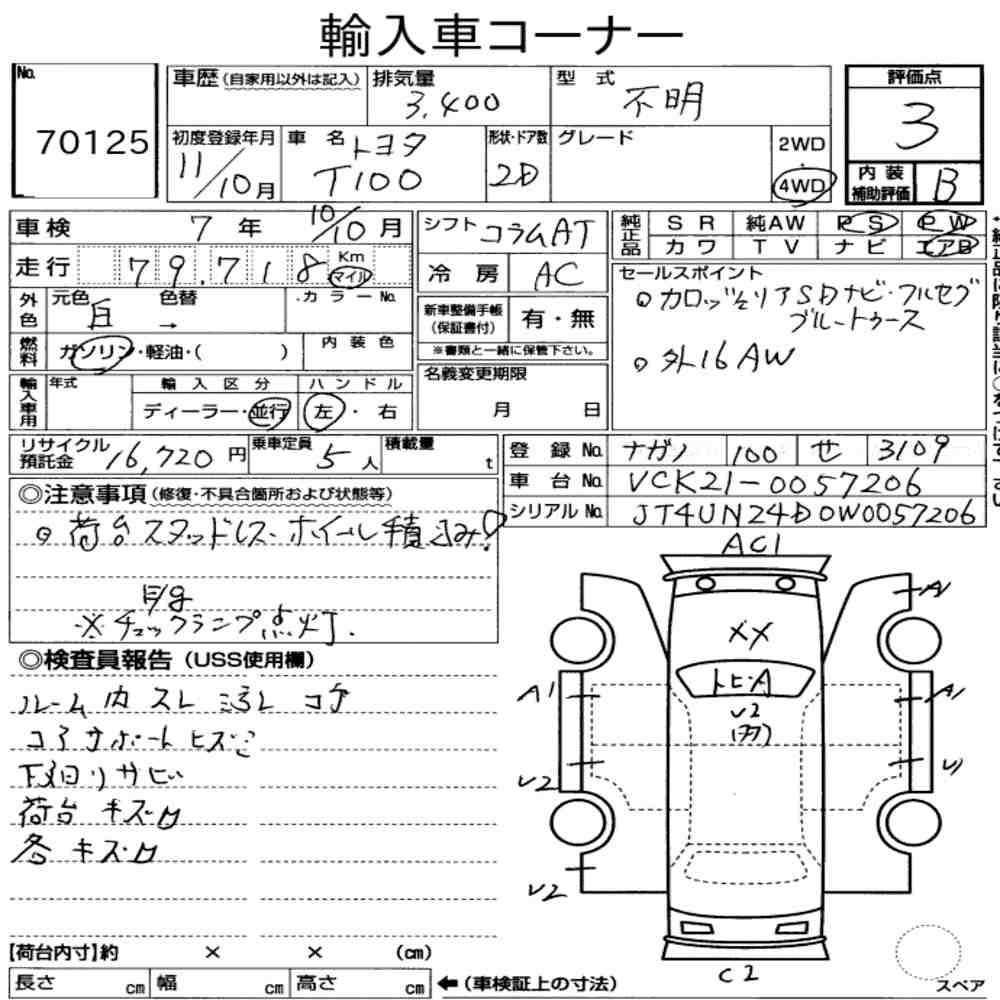 輸入車コーナー
No. 70125
車歴(自家用以外は記入) 排気量 3,400 型式 不明
初度登録年月 11/10月 車名 トヨタ T100 形状・ドア数 2D グレード 2WD・4WD
評価点 3
内装補助評価 B
車検 7年 10/10月
走行 79,718 Km マイル
シフト コラムAT
冷房 AC
純正品 SR 純AW PS PW
カワ TV ナビ エアB
外色 元色 白 色替 → カラーNo.
燃料 ガソリン・軽油・( ) 内装色
新車整備手帳(保証書付) 有・無
※書類と一緒に保管下さい。
セールスポイント
カロッツェリアSDナビ・フルセグ
ブルートゥース
外16AW
輸入車用 年式 輸入区分 ディーラー・並行 ハンドル 左・右
名義変更期限 月 日
リサイクル預託金 16,720円 乗車定員 5人 積載量 t
登録No. ナガノ 100 せ 3109
車台No. VCK21-0057206
シリアルNo. JT4UN24D0W0057206
◎注意事項(修復・不具合箇所および状態等)
荷台スタッドレス・ホイール積込み!
E/g
※チェックランプ点灯.
◎検査員報告(USS使用欄)
ルーム内 スレ コゲ
コアサポート ヒズミ
下廻りサビ
荷台 キズ凹
各 キズ凹
AC1
A1
XX
トビ・A
V2
A1
A1
V2
V1
V2
C2
【荷台内寸】約 × × (cm)
長さ cm 幅 cm 高さ cm ←(車検証上の寸法)
スペア